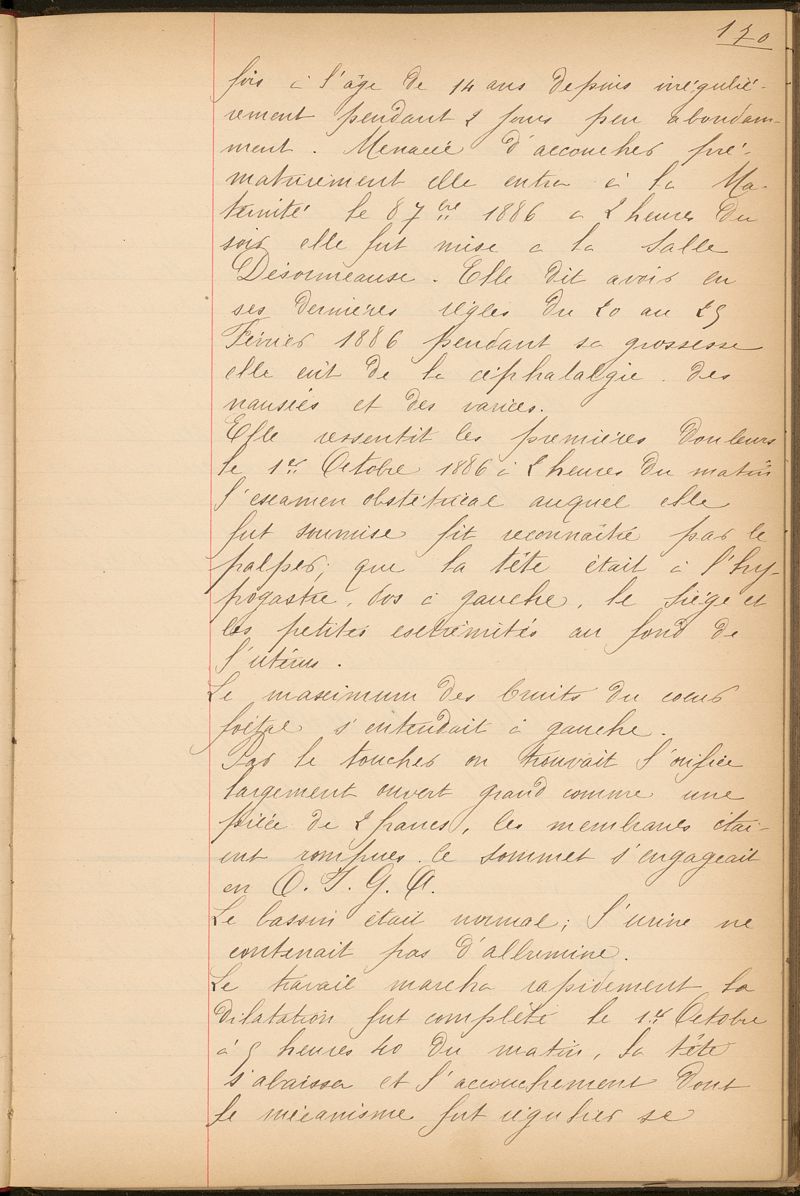 170
fois à l'âge de 14 ans depuis irréguliè-
rement pendant 2 jours peu abondam-
ment. Menacée d'accoucher pré-
maturément elle entra à la Ma-
ternité le 8 7bre 1886 a 2 heures du
soir elle fut mise a la Salle
Désormeause. Elle dit avoir eu
ses dernières règles du 20 au 25
Février 1886 pendant sa grossesse
elle eût de la céphalalgie. des
nausées et des varices.
Elle ressentit les premières douleurs
le 1er Octobre 1886 à 2 heures du matin
l'examen obstétrical auquel elle
fut soumise fit reconnaître par le
palper; que la tête était à l'hy-
pogastre, dos à gauche, le siège et
les petites extrémités au fond de
l'utérus.
Le maximum des bruits du coeur
foetal s'entendait à gauche.
Par le toucher on trouvait l'orifice
largement ouvert grand comme une
pièce de 2 francs, les membranes étai-
ent rompues. le sommet s'engageait
en O. I. G. A.
Le bassin était normal; l'urine ne
contenait pas d'albumine.
Le travail marcha rapidement la
dilatation fut complète le 1er Octobre
à 5 heures 40 du matin, la tête
s'abaissa et l'accouchement dont
le mécanisme fut régulier se